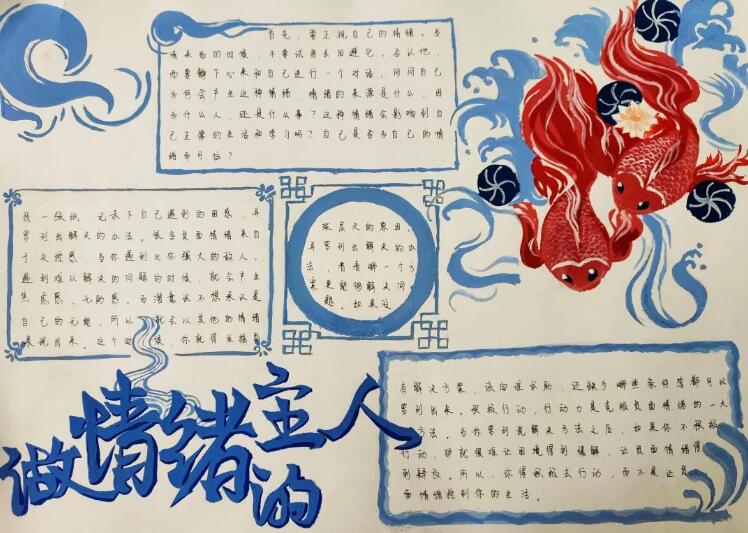 首先，要正视自己的情绪。当
情绪来临的时候，不要试图去回避它，否认他，
而要静下心来和自己进行一个对话，问问自己
为何会产生这种情绪，情绪的来源是什么。因
为什么人，还是什么事？这种情绪会影响到自
己正常的生活和学习吗？自己是否为自己的情
绪而自拉？
找一张纸，记录下自己遇到的困惑，并
罗列出解决的办法。很多负面情绪来自
于失控感，当你遇到比你强大的敌人，
遇到难以解决的问题的时候，就会产生
焦虑感、无助感。而潜意识不想承认是
自己的无能，所以 就会以其他的情绪
来现出来。这个时候，你就得去挖
深层次的原因，
并罗列出解决的办
法，看看哪一个方
案是能够解决问
题。如果没
有解决方案，该向谁求助，还缺少哪些条件等都可以
罗列出来。积极行动，行动力是克服负面情绪的一大
方法。当你罗列完解决方法之后，如果你不积极
行动，那就很难让困境得到缓解，让负面情绪得
到释放。所以，你得积极去行动，而不是让负
面情绪控制你的生活。
做情绪的主人